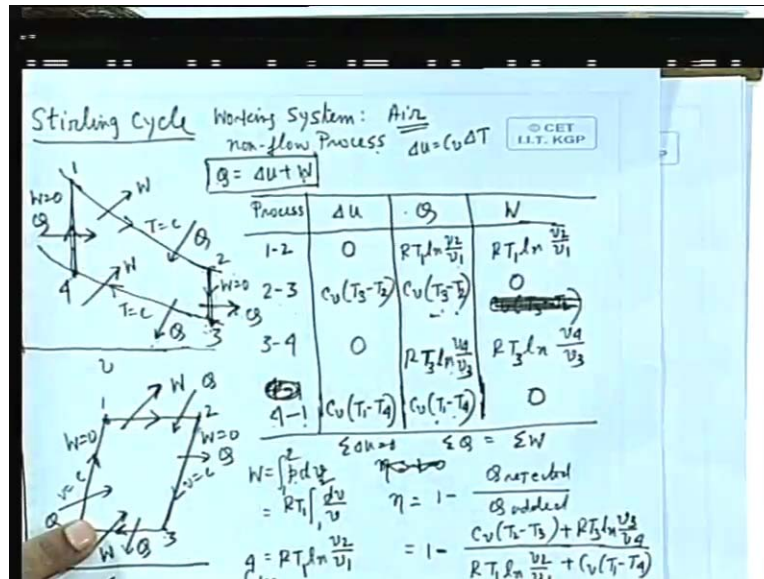 Stirling Cycle Working System: Air
non-flow Process Δu = Cv ΔT
© CET
I.I.T. KGP
Q = Δu + W
1
W=0
Q
W
T=c
Q
2
W=0
Q
4
W
T=c
Q
3
v
Process Δu Q W
1-2 0 RT₁ ln v₂/v₁ RT₁ ln v₂/v₁
2-3 Cv(T₃-T₂) Cv(T₃-T₂) 0
3-4 0 RT₃ ln v₄/v₃ RT₃ ln v₄/v₃
4-1 Cv(T₁-T₄) Cv(T₁-T₄) 0
ΣΔu=0 ΣQ = ΣW
1
W
Q
2
W=0
v=c
W=0
Q
v=c
Q
W
Q
3
W = ∫₁² p dv
= RT₁ ∫ dv/v
q = RT₁ ln v₂/v₁
η = 1 - Q rejected / Q added
= 1 - Cv(T₂-T₃) + RT₃ ln v₃/v₄ / RT₁ ln v₂/v₁ + Cv(T₁-T₄)